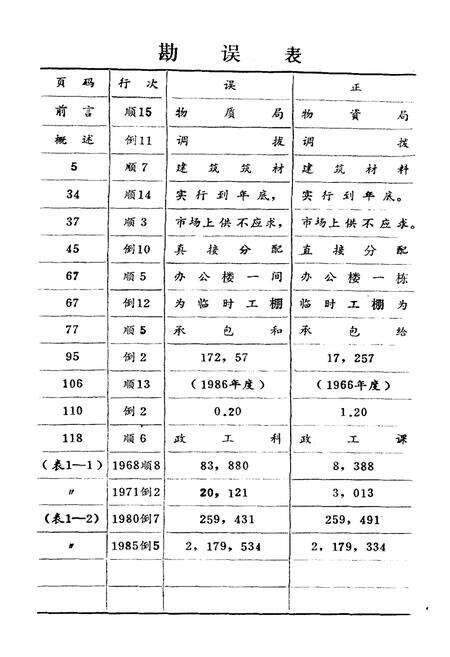 勘误表
页码 行次 误 正
前言 顺15 物质局 物資局
概述 倒11 调拔 调拨
5 顺7 建筑筑材 建筑材料
34 顺14 实行到年底， 实行到年底。
37 顺3 市场上供不应求， 市场上供不应求。
45 倒10 真接分配 直接分配
67 顺5 办公楼一间 办公楼一栋
67 倒12 为临时工棚 临时工棚为
77 顺5 承包和 承包给
95 倒2 172，57 17，257
106 顺13 （1986年度） （1966年度）
110 倒2 0.20 1.20
118 顺6 政工科 政工课
（表1—1） 1968顺8 83，880 8，388
〃 1971倒2 20，121 3，013
（表1—2） 1980倒7 259，431 259，491
〃 1985倒5 2，179，534 2，179，334